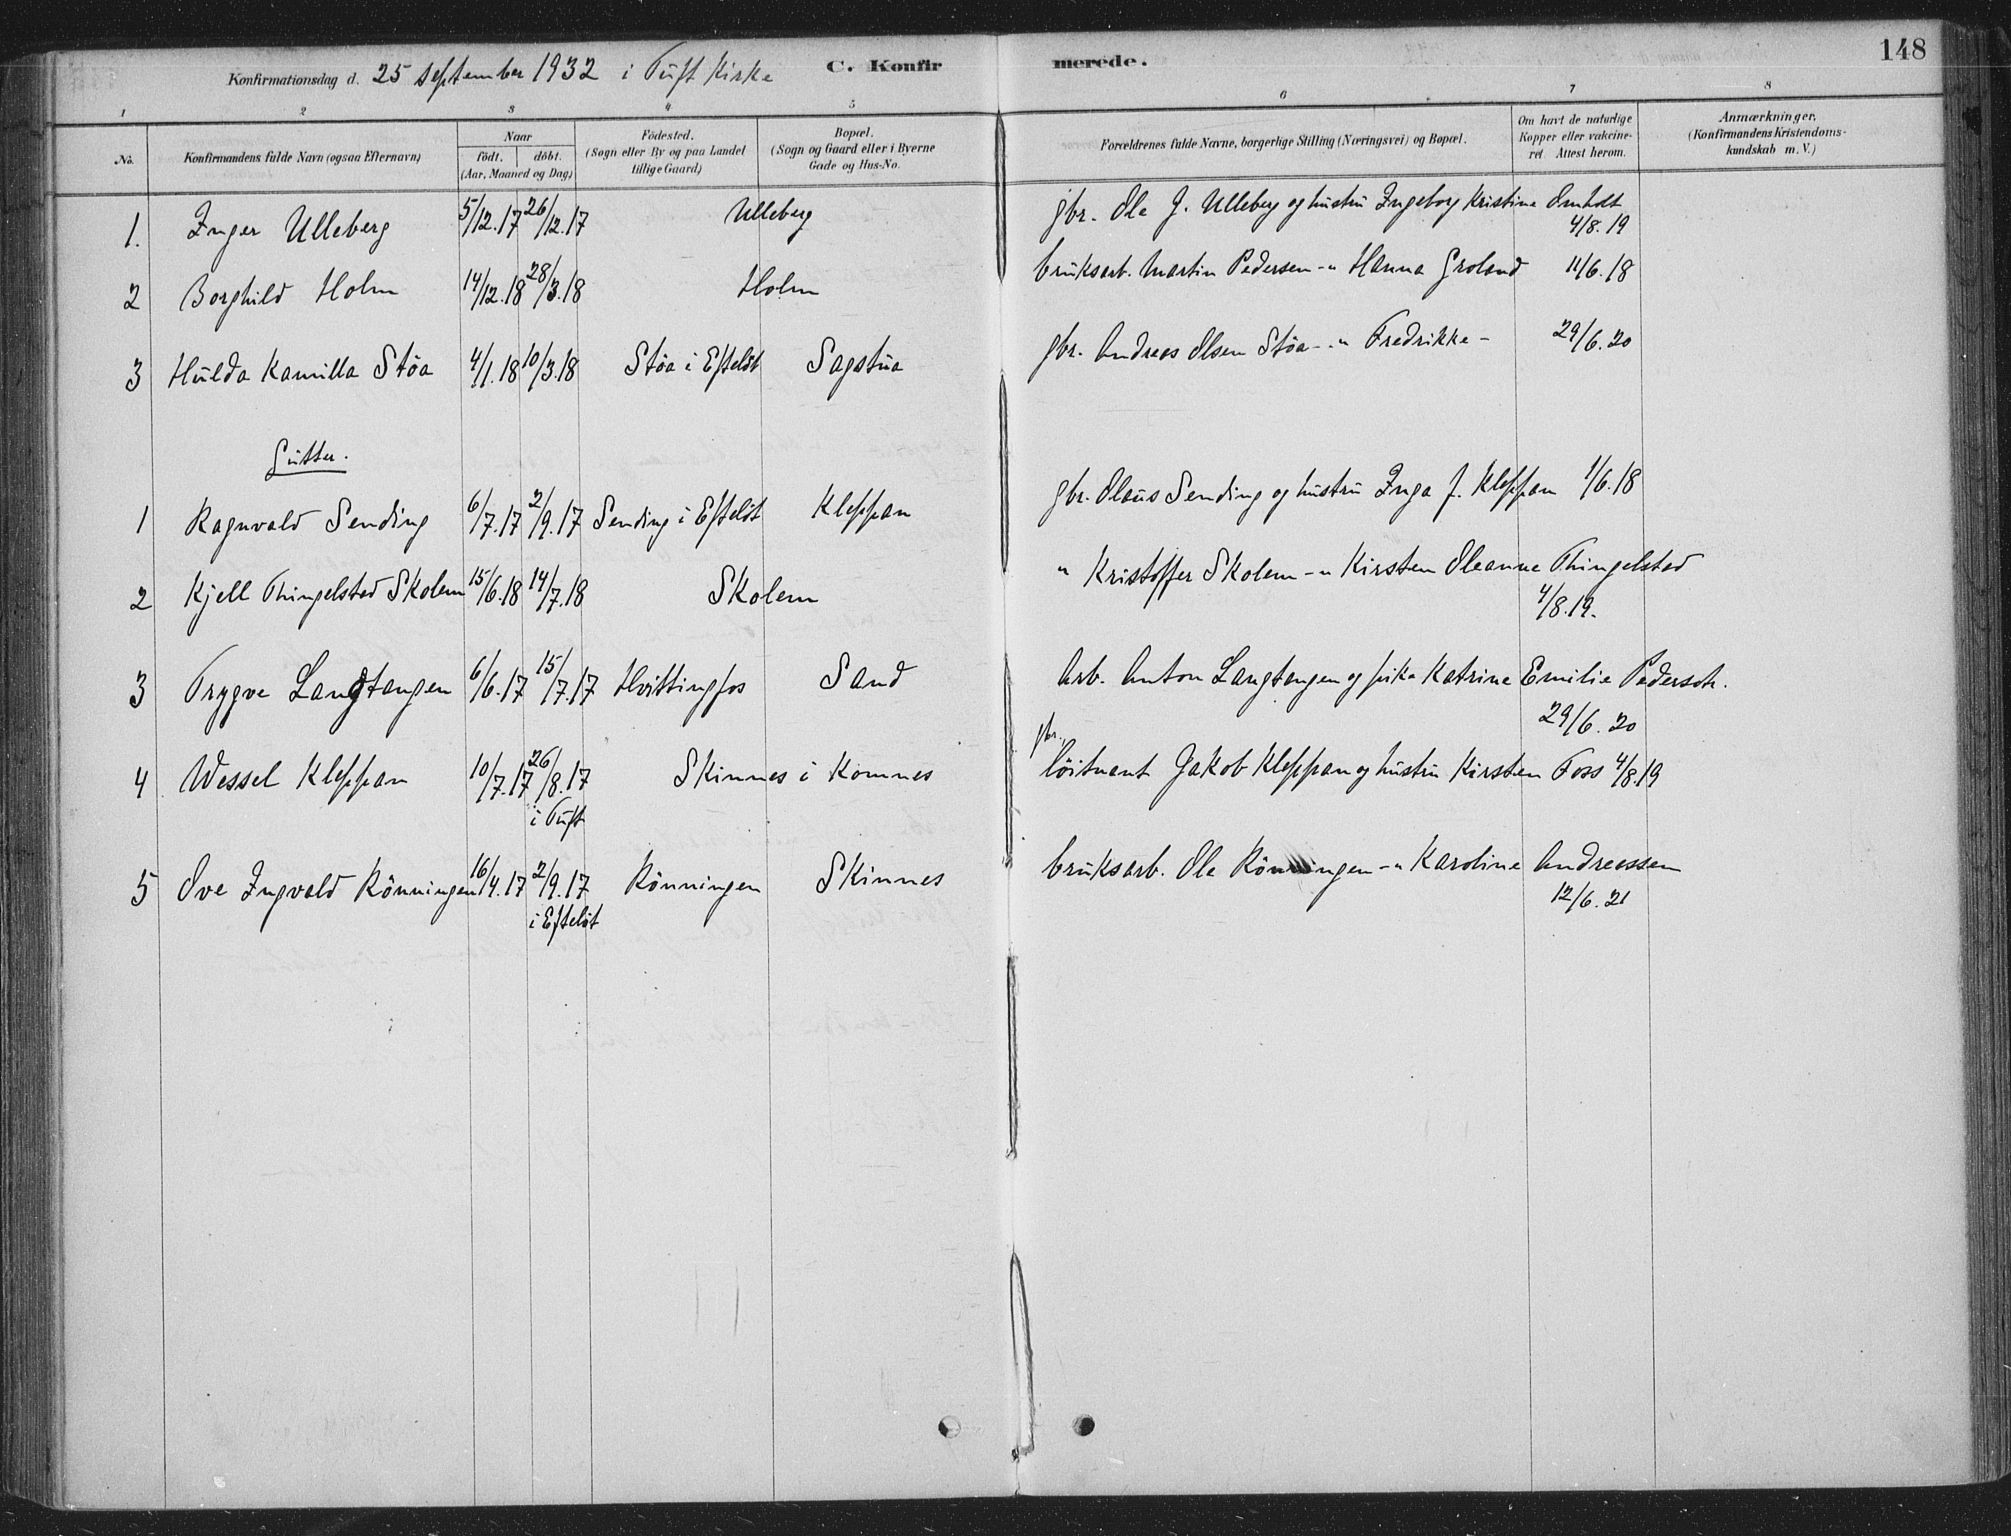 148
Konfirmationsdag d. 25 september 1932 i Tuft Kirke C. Konfirmerede.
1 2 3 4 5 6 7 8
No. Konfirmandens fulde Navn (ogsaa Efternavn) Naar født. døbt. (Aar, Maaned og Dag) Fødested. (Sogn eller By og paa Landet tillige Gaard) Bopæl. (Sogn og Gaard eller i Byerne Gade og Hus-No. Forældrenes fulde Navne, borgerlige Stilling (Næringsvei) og Bopæl. Om havt de naturlige Kopper eller vakcineret Attest herom. Anmærkninger. (Konfirmandens Kristendomskundskab m. V.)
1. Inger Ulleberg 5/12.17 26/12.17 Ulleberg gbr. Ole J. Ulleberg og hustru Ingeborg Kristine Omholt
4/8.19
2 Borghild Holm 14/12.18 28/3.18 Holm bruksarb. Martin Pedersen -" Hanna Groland 11/6.18
3 Hulda Kamilla Støa 4/1.18 10/3.18 Støa i Efteløt Sagstua gbr. Andreas Olsen Støa -" Fredrikke - 29/6.20
Gutter.
1 Ragnvald Sending 6/7.17 2/9.17 Sending i Efteløt Kleppan gbr. Olaus Sending og hustru Inga J. Kleppan 1/6.18
2 Kjell Thingelstad Skolem 15/6.18 14/7.18 Skolem " Kristoffer Skolem -" Kirsten Oleanne Thingelstad
4/8.19.
3 Trygve Langtangen 6/6.17 15/7.17 Hvittingfos Sand Arb. Anton Langtangen og pike Katrine Emilie Pedersdtr.
29/6.20
gbr.
4 Wessel Kleppan 10/7.17 26/8.17 Skinnes i Komnes løitnant Jakob Kleppan og hustru Kirsten Foss 4/8.19
i Tuft
5 Ove Ingvald Rønningen 16/4.17 2/9.17 Rønningen Skinnes bruksarb. Ole Rønningen -" Karoline Andreassen
i Efteløt 12/6.21